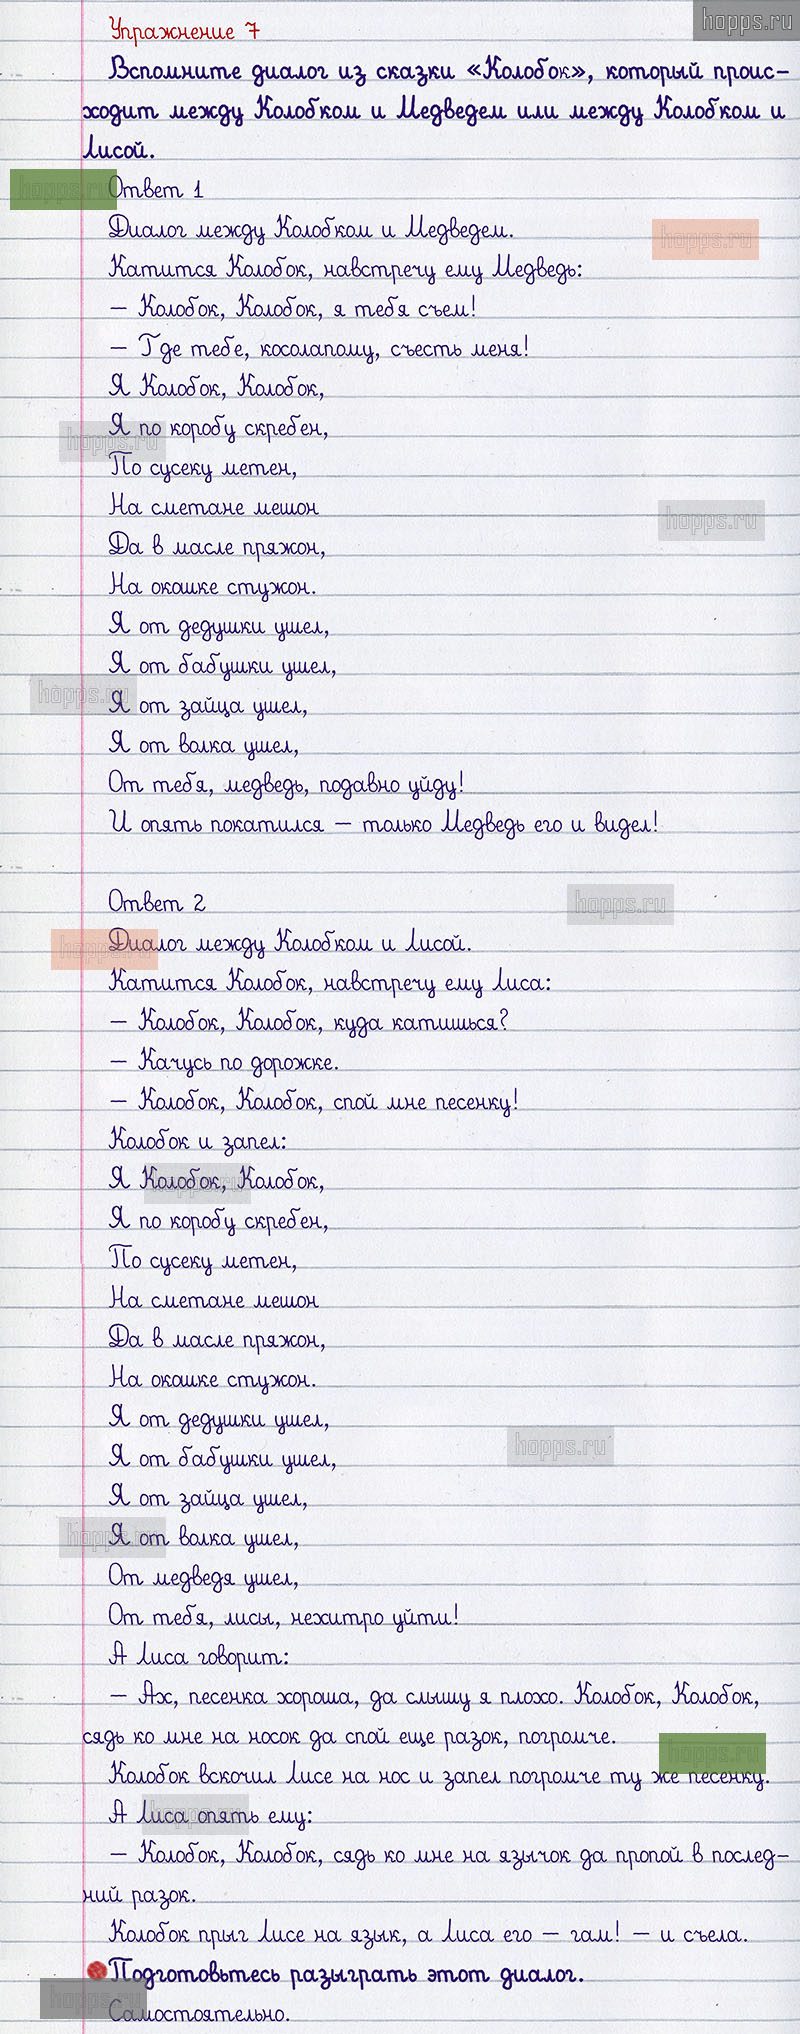 hopps.ru
Упражнение 7
Вспомните диалог из сказки «Колобок», который проис-
ходит между Колобком и Медведем или между Колобком и
Лисой.
hopps.ru
Ответ 1
Диалог между Колобком и Медведем.
hopps.ru
Катится Колобок, навстречу ему Медведь:
– Колобок, Колобок, я тебя съем!
– Где тебе, косолапому, съесть меня!
Я Колобок, Колобок,
Я по коробу скребен,
hopps.ru
По сусеку метен,
На сметане мешон
hopps.ru
Да в масле пряжон,
На окошке стужон.
Я от дедушки ушел,
Я от бабушки ушел,
hopps.ru
Я от зайца ушел,
Я от волка ушел,
От тебя, медведь, подавно уйду!
И опять покатился – только Медведь его и видел!
Ответ 2
hopps.ru
Диалог между Колобком и Лисой.
hopps.ru
Катится Колобок, навстречу ему Лиса:
– Колобок, Колобок, куда катишься?
– Качусь по дорожке.
– Колобок, Колобок, спой мне песенку!
Колобок и запел:
Я Колобок, Колобок,
hopps.ru
Я по коробу скребен,
По сусеку метен,
На сметане мешон
Да в масле пряжон,
На окошке стужон.
Я от дедушки ушел,
Я от бабушки ушел,
hopps.ru
Я от зайца ушел,
Я от волка ушел,
hopps.ru
От медведя ушел,
От тебя, лисы, нехитро уйти!
А Лиса говорит:
– Ах, песенка хороша, да слышу я плохо. Колобок, Колобок,
сядь ко мне на носок да спой еще разок, погромче.
hopps.ru
Колобок вскочил Лисе на нос и запел погромче ту же песенку.
А Лиса опять ему:
hopps.ru
– Колобок, Колобок, сядь ко мне на язычок да пропой в послед-
ний разок.
Колобок прыг Лисе на язык, а Лиса его – гам! – и съела.
Подготовьтесь разыграть этот диалог.
hopps.ru
Самостоятельно.